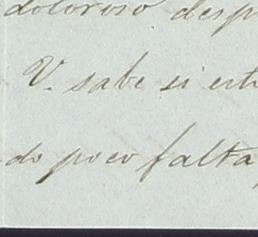 doloroso desp
V. sabe si est
do poco falta